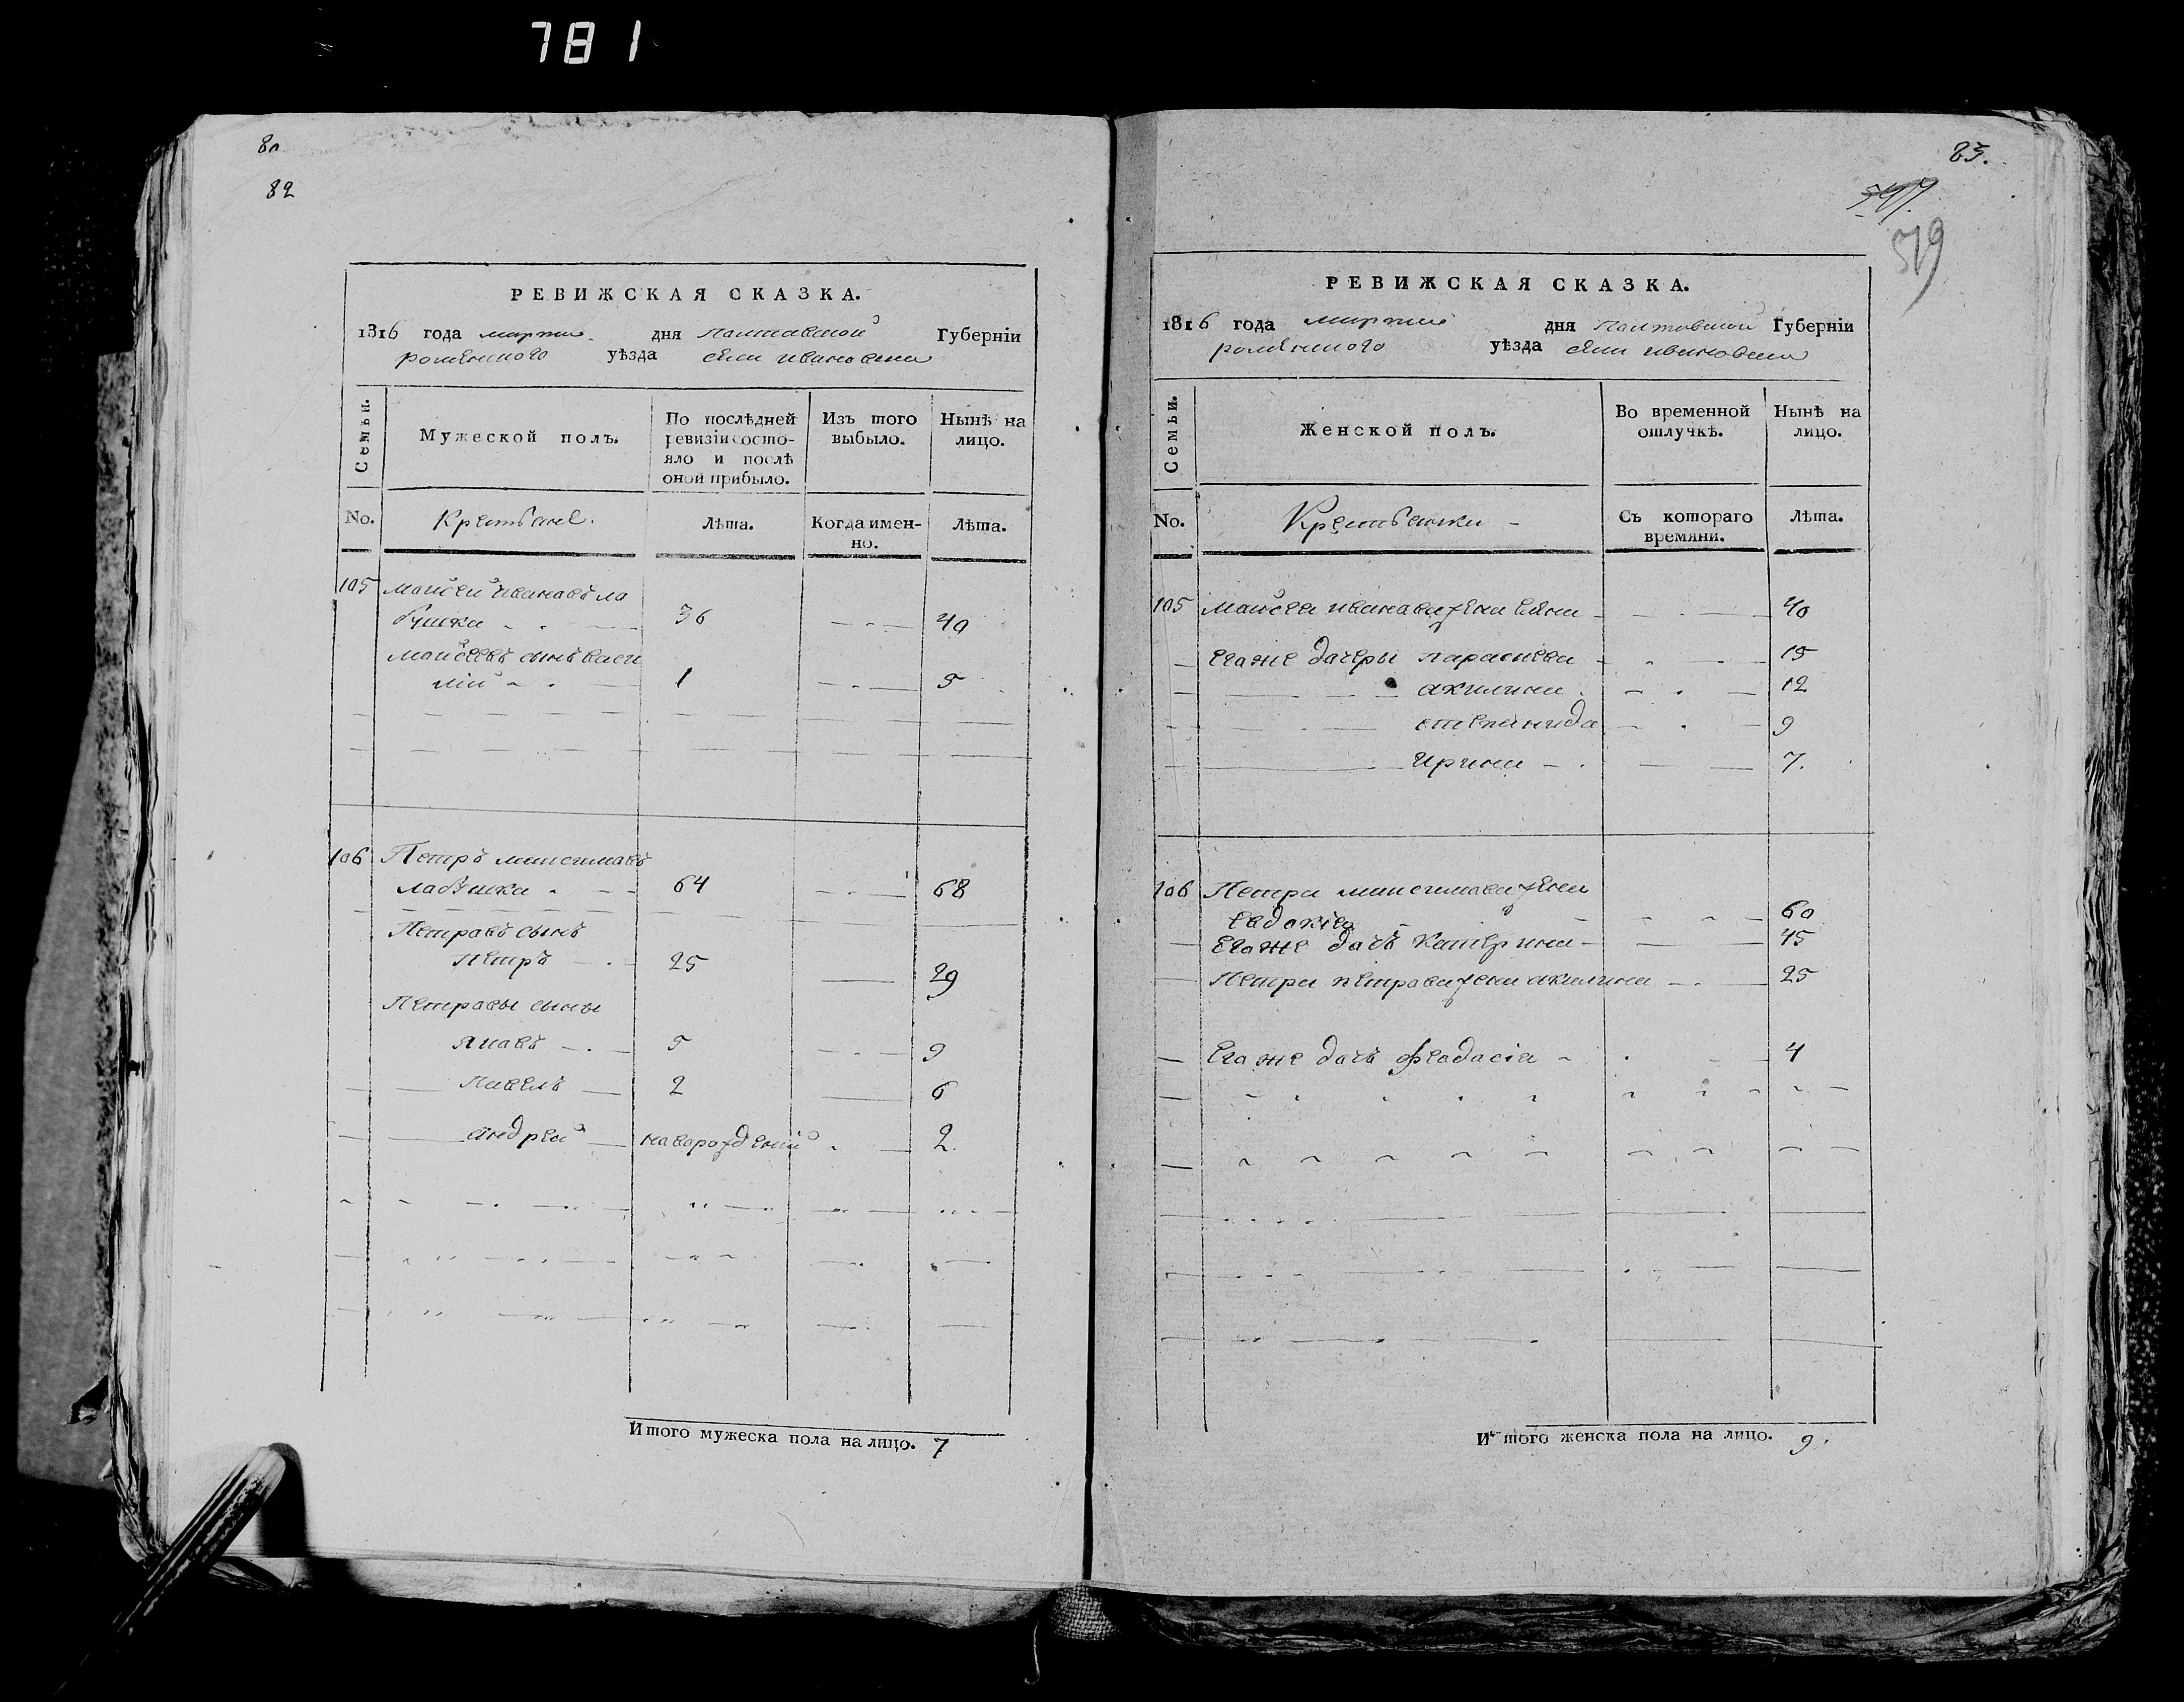 781
80
82
РЕВИЖСКАЯ СКАЗКА.
1816 года марта дня Полтавской Губерніи
роменского уѣзда села ивановки
Семьи.
Мужеской полъ.
По послѣдней ревизіи состояло и послѣ оной прибыло.
Изъ того выбыло.
Нынѣ на лицо.
No.
Крестьяне.
Лѣта.
Когда именно.
Лѣта.
105 Мойсей Ивановъ ла
бушка 36 40
Мойсеевъ сынъ васи
лій 1 5
106 Петръ максимовъ
лабушка 64 68
Петровъ сынъ
Петръ 25 29
Петровы сыны
Яковъ 5 9
Павелъ 2 6
андрей новорожденій 2
Итого мужеска пола на лицо. 7
83.
579
РЕВИЖСКАЯ СКАЗКА.
1816 года марта дня Полтавской Губерніи
роменского уѣзда села ивановки
Семьи.
Женской полъ.
Во временной отлучкѣ.
Нынѣ на лицо.
No.
Крестьянки
Съ котораго времяни.
Лѣта.
105 Мойсея иванова жена 40
Егоже дочеры параскева 15
акилина 12
степанида 9
Ирина 7.
106 Петра максимова жена
Евдокія 60
Егоже дочъ Катерина 45
Петра петрова жена акилина 25
Егоже дочъ феодосія 4
Итого женска пола на лицо. 9.